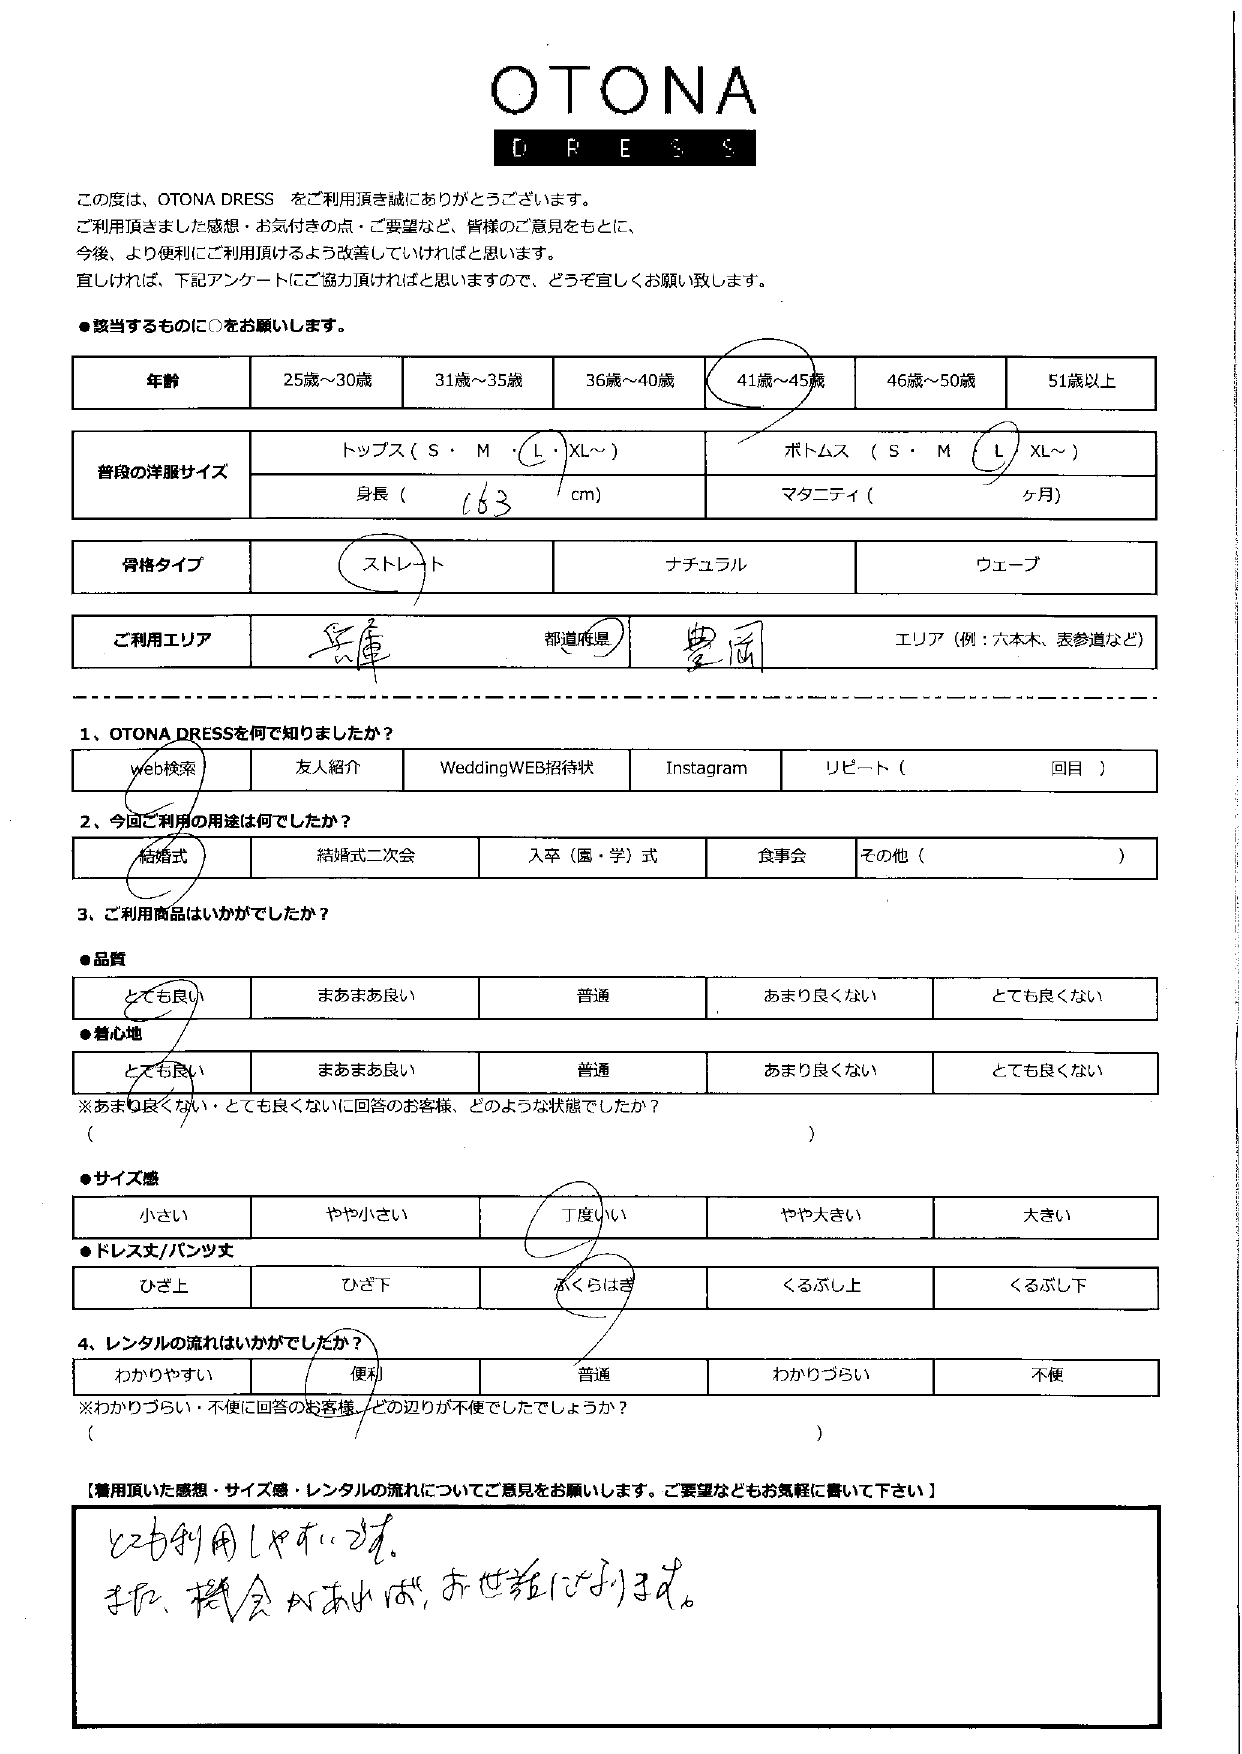 OTONA
DRESS
この度は、OTONA DRESS　をご利用頂き誠にありがとうございます。
ご利用頂きました感想・お気付きの点・ご要望など、皆様のご意見をもとに、
今後、より便利にご利用頂けるよう改善していければと思います。
宜しければ、下記アンケートにご協力頂ければと思いますので、どうぞ宜しくお願い致します。
●該当するものに○をお願いします。
年齢 25歳～30歳 31歳～35歳 36歳～40歳 41歳～45歳 46歳～50歳 51歳以上
普段の洋服サイズ トップス ( S ・ M ・ L ・ XL～ ) ボトムス ( S ・ M ・ L ・ XL～ )
身長 ( 163 cm) マタニティ ( ヶ月)
骨格タイプ ストレート ナチュラル ウェーブ
ご利用エリア 兵庫 都道府県 豊岡 エリア（例：六本木、表参道など）
1、OTONA DRESSを何で知りましたか？
web検索 友人紹介 WeddingWEB招待状 Instagram リピート（ 回目 ）
2、今回ご利用の用途は何でしたか？
結婚式 結婚式二次会 入卒（園・学）式 食事会 その他（ ）
3、ご利用商品はいかがでしたか？
●品質
とても良い まあまあ良い 普通 あまり良くない とても良くない
●着心地
とても良い まあまあ良い 普通 あまり良くない とても良くない
※あまり良くない・とても良くないに回答のお客様、どのような状態でしたか？
（ ）
●サイズ感
小さい やや小さい 丁度いい やや大きい 大きい
●ドレス丈/パンツ丈
ひざ上 ひざ下 ふくらはぎ くるぶし上 くるぶし下
4、レンタルの流れはいかがでしたか？
わかりやすい 便利 普通 わかりづらい 不便
※わかりづらい・不便に回答のお客様、どの辺りが不便でしたでしょうか？
（ ）
【着用頂いた感想・サイズ感・レンタルの流れについてご意見をお願いします。ご要望などもお気軽に書いて下さい】
とても利用しやすいです。
また、機会があれば、お世話になります。